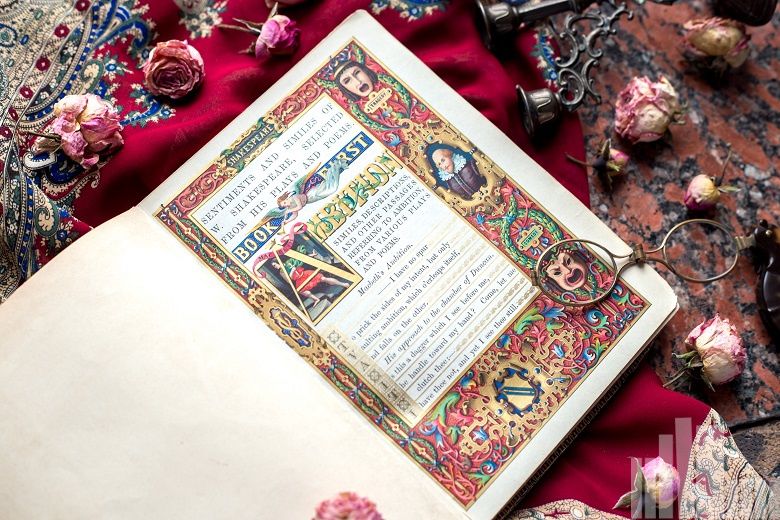 SHAKESPEARE
SENTIMENTS AND SIMILES OF
W. SHAKESPEARE, SELECTED
FROM HIS PLAYS AND POEMS.
BOOK FIRST
AMBITION
SIMILES, DESCRIPTIONS,
AND OTHER PASSAGES
REFERRING TO AMBITION,
FROM VARIOUS PLAYS
AND POEMS.
Macbeth's Ambition.
I have no spur
o prick the sides of my intent, but only
aulting ambition, which o'erleaps itself,
nd falls on the other.
His approach to the chamber of Duncan.
s this a dagger which I see before me,
he handle toward my hand? Come, let me
clutch thee:
have thee not, and yet I see thee still